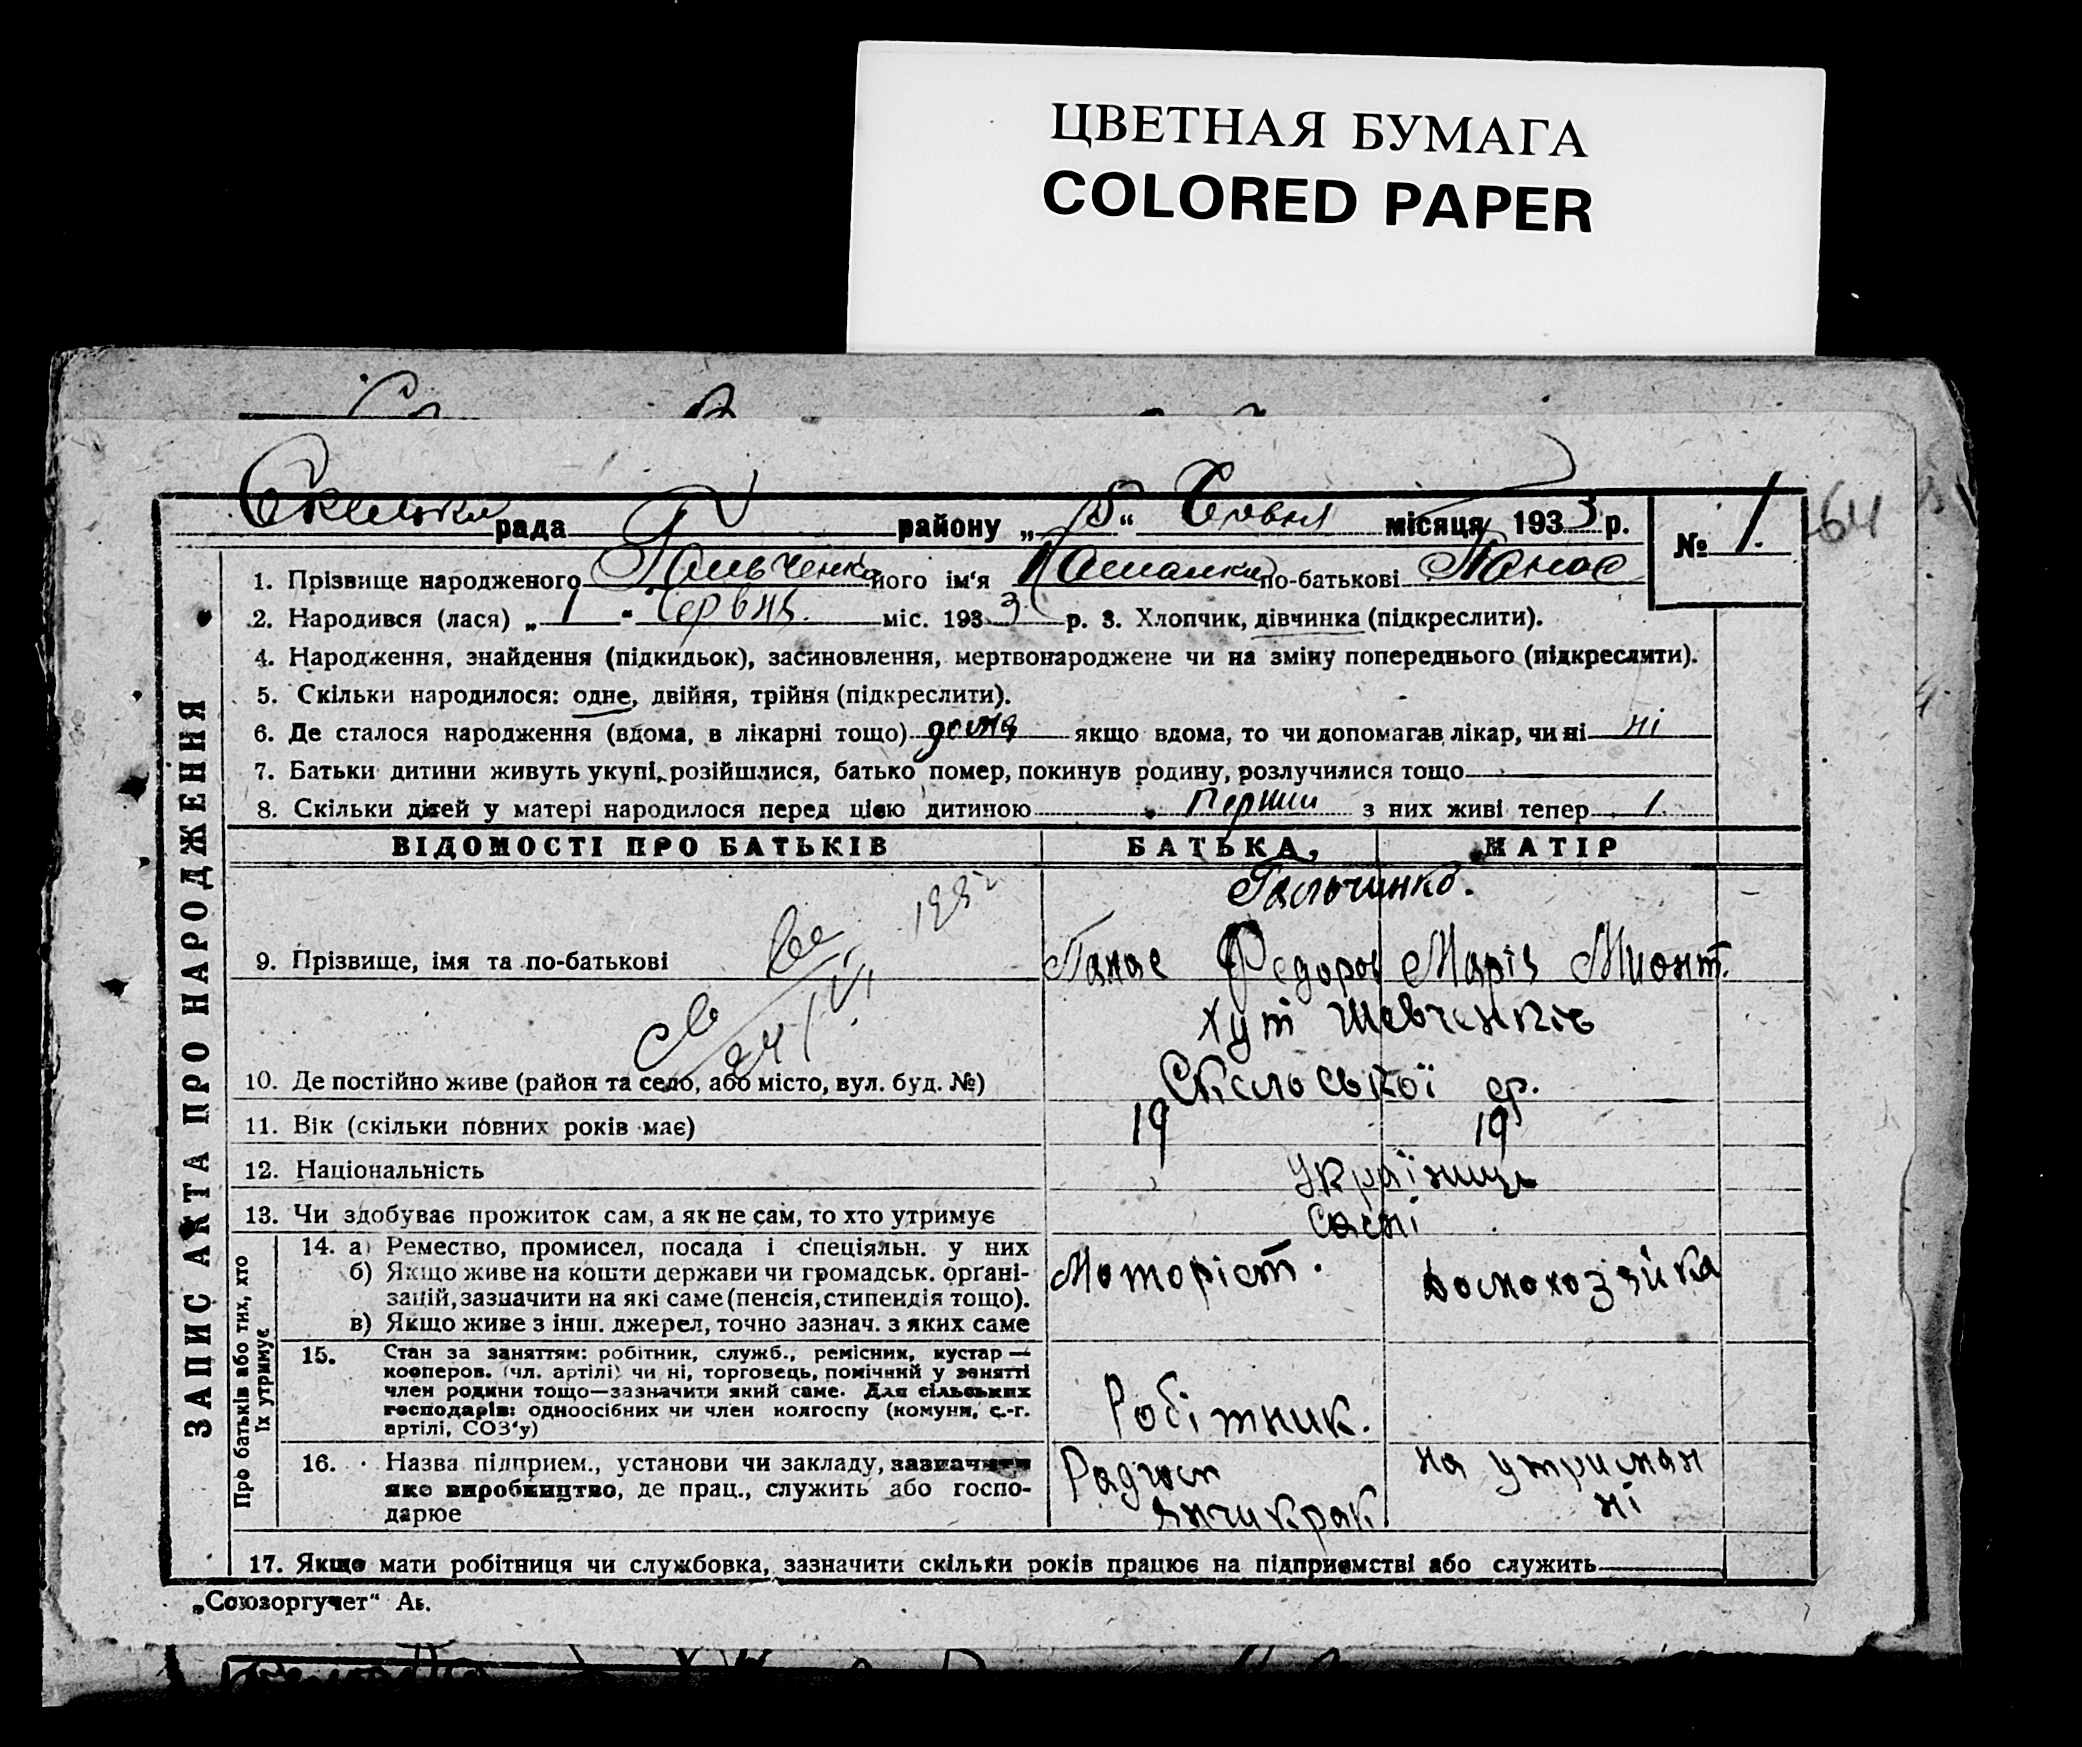 ЦВЕТНАЯ БУМАГА
COLORED PAPER
рада району „ “ Червня місяця 1933 р. № 1. 64
1. Прізвище народженого Гальченко його ім'я по-батькові Панас
2. Народився (лася) „ 1 “ Червня. міс. 1933 р. 3. Хлопчик, дівчинка (підкреслити).
4. Народження, знайдення (підкидьок), засиновлення, мертвонароджене чи на зміну попереднього (підкреслити).
5. Скільки народилося: одне, двійня, трійня (підкреслити).
6. Де сталося народження (вдома, в лікарні тощо) дома якщо вдома, то чи допомагав лікар, чи ні ні
7. Батьки дитини живуть укупі, розійшлися, батько помер, покинув родину, розлучилися тощо
8. Скільки дітей у матері народилося перед цією дитиною перший з них живі тепер 1.
ЗАПИС АКТА ПРО НАРОДЖЕННЯ
ВІДОМОСТІ ПРО БАТЬКІВ БАТЬКА, МАТІР
Гальчинко.
9. Прізвище, імя та по-батькові Панас Федоров Марія
хут Шевченків
10. Де постійно живе (район та село, або місто, вул. буд. №) Скельської ср.
11. Вік (скільки повних років має) 19 19
12. Національність Українці
13. Чи здобуває прожиток сам, а як не сам, то хто утримує Самі
Про батьків або тих, хто їх утримує
14. а) Ремество, промисел, посада і спеціяльн. у них Моторіст. домохозяйка
б) Якщо живе на кошти держави чи громадськ. органі-
зацій, зазначити на які саме (пенсія, стипендія тощо).
в) Якщо живе з інш. джерел, точно зазнач. з яких саме
15. Стан за заняттям: робітник, служб., ремісник, кустар —
кооперов. (чл. артілі) чи ні, торговець, помічний у занятті
член родини тощо—зазначити який саме. Для сільських
господарів: одноосібних чи член колгоспу (комуни, с.-г.
артілі, СОЗ'у) Робітник.
16. Назва підприєм., установи чи закладу, зазначити Радгосп на утриман
яке виробництво, де прац., служить або госпо- Янчикрак ні
дарює
17. Якщо мати робітниця чи службовка, зазначити скільки років працює на підприємстві або служить
„Союзоргучет“